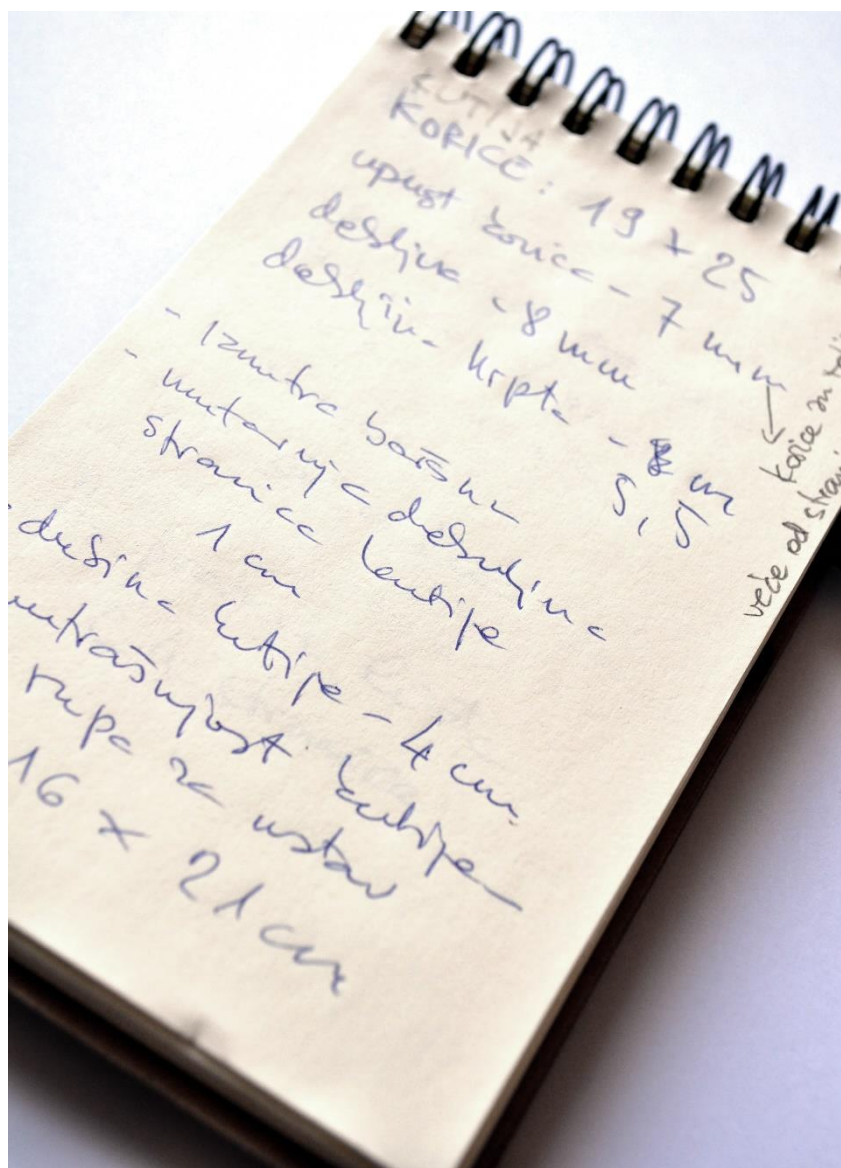 KUTIJA
KORICE: 19 x 25
upust korica - 7 mm
debljina - 8 mm
hrpta -
5,5
- iznutra
- unutarnja debuljina
stranica kutije
1 cm
kutije - 4 cm
unutrašnjost kutije -
rupa za ustav
16 x 21 cm
korice su
veće od